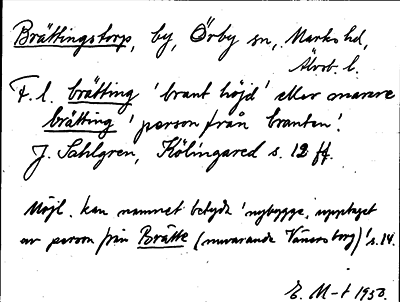 Brättingstorp, by, Örby sn, Marks hd,
Älvsb. l.
F. l. brätting 'brant höjd' eller snarare
brätting 'person från branten'.
J. Sahlgren, Kölingared s. 12 ff.
Möjl. kan namnet betyda 'nybygge, upptaget
av person från Brätte (nuvarande Vänersborg)' s. 14.
E. M-t 1950.